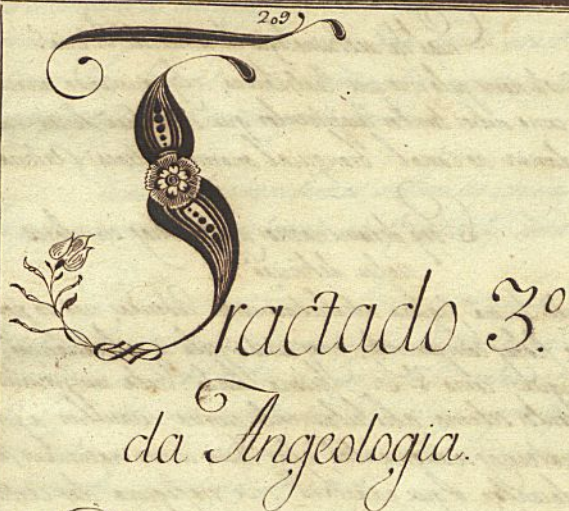 209
Tractado 3.º
da Angeologia.